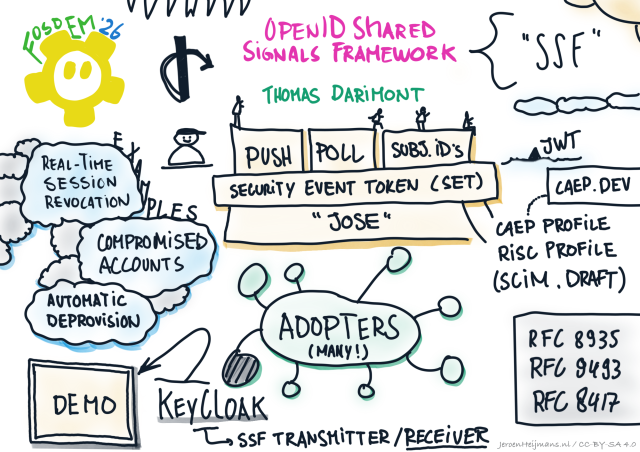 FOSDEM '26
OPENID SHARED
SIGNALS FRAMEWORK
"SSF"
THOMAS DARIMONT
EXAMPLES
REAL-TIME
SESSION
REVOCATION
COMPROMISED
ACCOUNTS
AUTOMATIC
DEPROVISION
PUSH
POLL
SUBJ. iD's
SECURITY EVENT TOKEN (SET)
"JOSE"
JWT
CAEP.DEV
CAEP PROFILE
RISC PROFILE
(SCiM. DRAFT)
ADOPTERS
(MANY!)
RFC 8935
RFC 9493
RFC 8417
DEMO
KEYCLOAK
SSF TRANSMITTER/RECEIVER
JeroenHeijmans.nl / CC-BY-SA 4.0